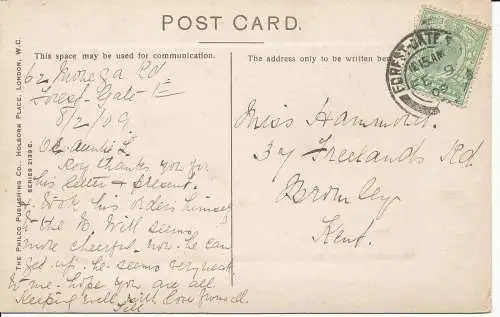 POST CARD.
This space may be used for communication.
The address only to be written here
THE PHILCO PUBLISHING CO., HOLBORN PLACE, LONDON, W.C.
SERIES 2139 E.
FOREST-GATE
62 Rd
Forest Gate E
8/2/09
Auntie L
Roy thanks you for
his letter & present.
& took his orders himself
& the Will seems
more cheerful now he can
get up. he seems very weak
to me. hope you are all
keeping well with love from all
Miss Hammond
37 Freelands Rd
Bromley
Kent.